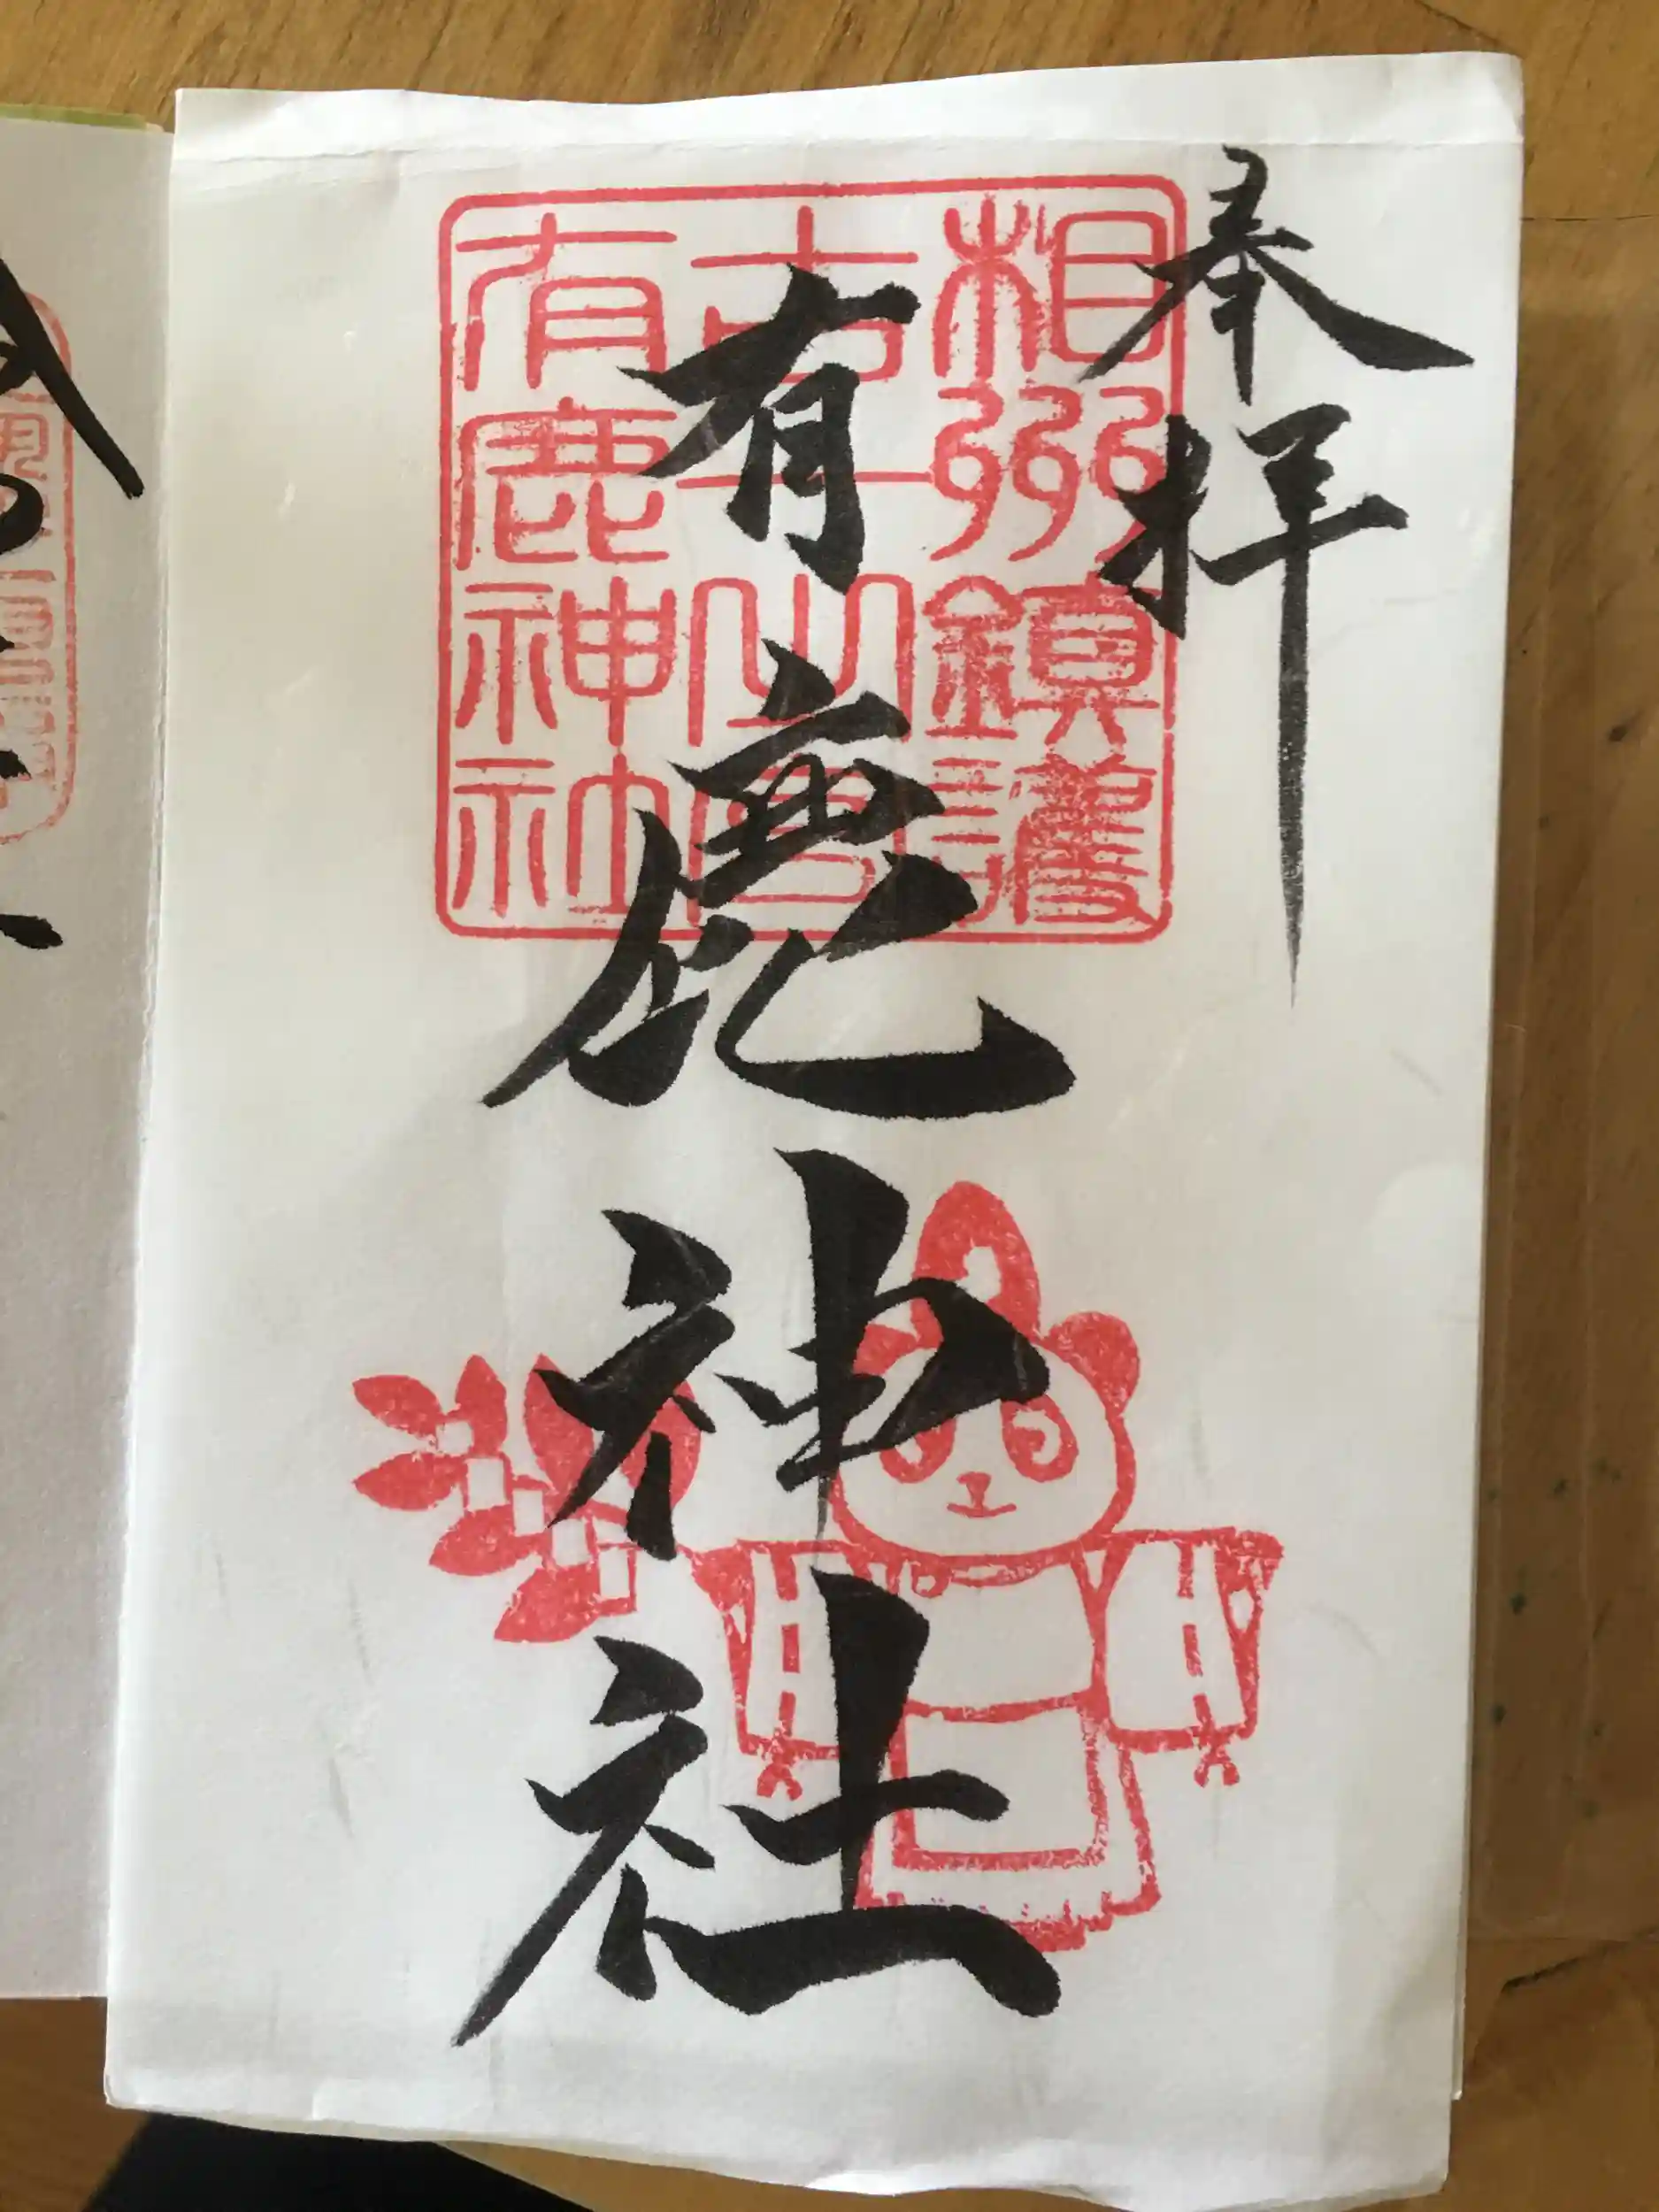 奉拝
有鹿神社
相州鎮護
有鹿神社